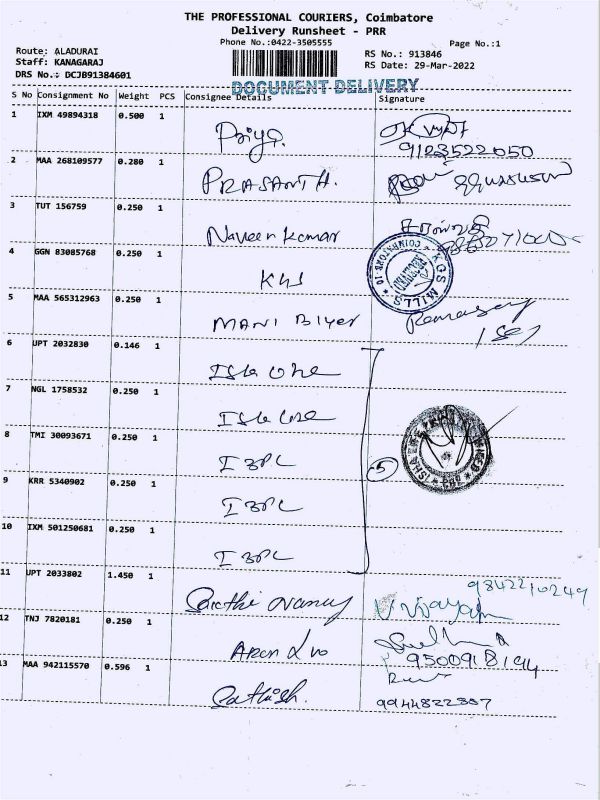 THE PROFESSIONAL COURIERS, Coimbatore
Delivery Runsheet - PRR
Phone No.:0422-3505555
Page No.:1
Route: ALADURAI
Staff: KANAGARAJ
DRS No.: DCJB91384601
RS No.: 913846
RS Date: 29-Mar-2022
DOCUMENT DELIVERY
S No Consignment No Weight PCS Consignee Details Signature
1 IXM 49894318 0.500 1
Priya.
9123522050
2 MAA 268109577 0.280 1
PRASANTH.
3 TUT 156759 0.250 1
Naveen Kumar
4 GGN 83085768 0.250 1
KGS
KGS MILLS
COIMBATORE-10
5 MAA 565312963 0.250 1
MANI
Ramasamy
6 UPT 2032830 0.146 1
Isha
7 NGL 1758532 0.250 1
Isha
8 TMI 30093671 0.250 1
IBPL
5
9 KRR 5340902 0.250 1
IBPL
10 IXM 501250681 0.250 1
IBPL
11 UPT 2033802 1.450 1
9842210249
V. Vijayan
12 TNJ 7820181 0.250 1
Arun
9500918194
13 MAA 942115570 0.596 1
Sathish.
9944822357